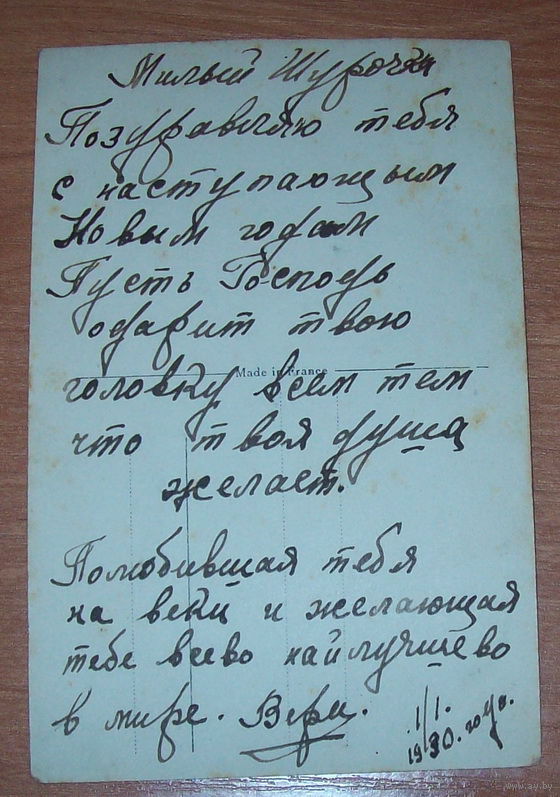 Милый Шурочка
Поздуравляю тебя
с наступающым
Новым годам
Пусть Господь
одарит твою
Made in France
головку всем тем
что твоя душа
желает.
Полюбившая тебя
на веки и желающая
тебе всево найлучшево
в мире. Вера.
1/1.
1930. года.
www.ay.by